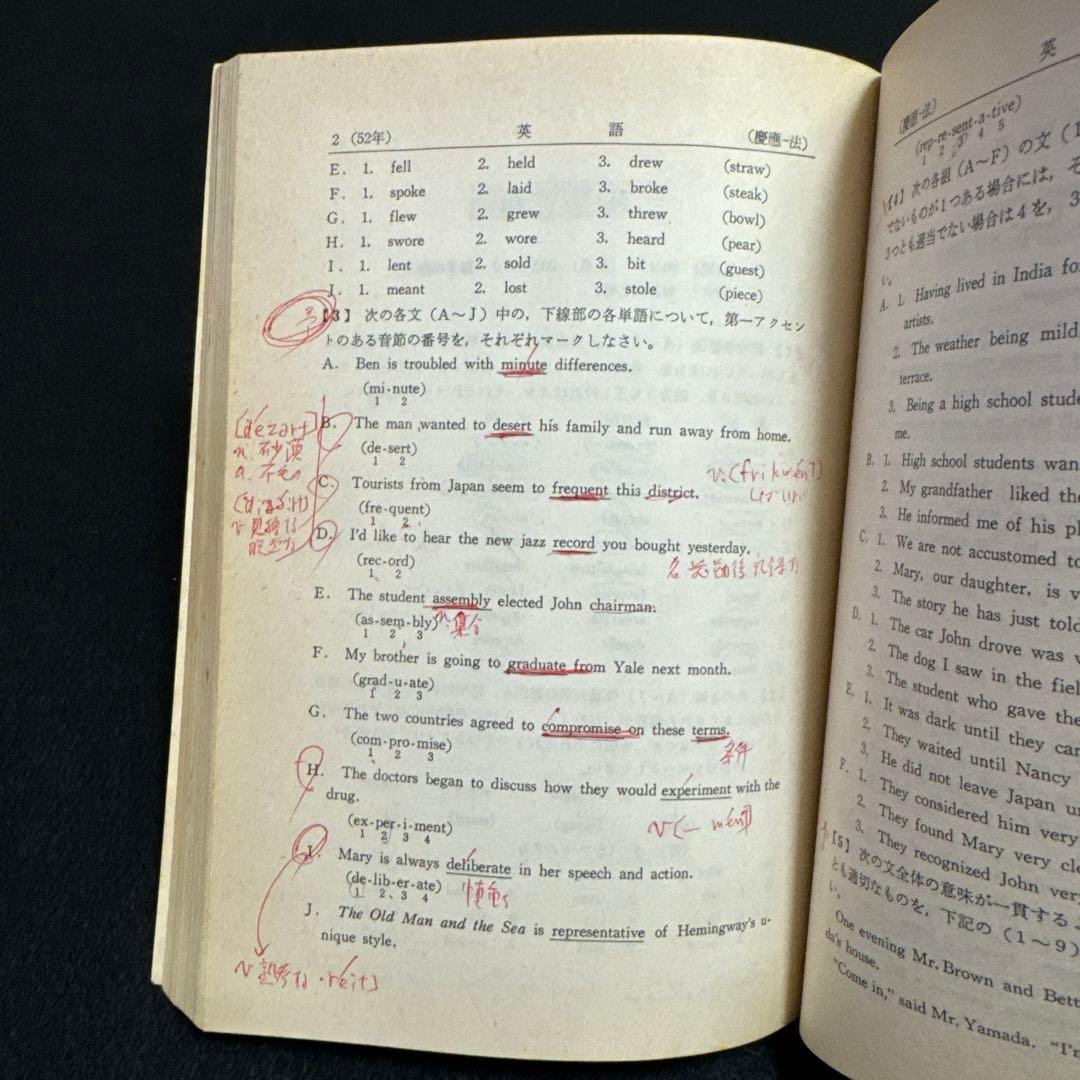 2 (52年) 英 語 (慶應-法)
E. 1. fell 2. held 3. drew (straw)
F. 1. spoke 2. laid 3. broke (steak)
G. 1. flew 2. grew 3. threw (bowl)
H. 1. swore 2. wore 3. heard (pear)
I. 1. lent 2. sold 3. bit (guest)
J. 1. meant 2. lost 3. stole (piece)
【3】 次の各文(A～J)中の，下線部の各単語について，第一アクセン
トのある音節の番号を，それぞれマークしなさい。
A. Ben is troubled with minute differences.
(mi-nute)
1 2
B. The man wanted to desert his family and run away from home.
(de-sert)
1 2
C. Tourists from Japan seem to frequent this district.
(fre-quent)
1 2
D. I'd like to hear the new jazz record you bought yesterday.
(rec-ord)
1 2
E. The student assembly elected John chairman.
(as-sem-bly)
1 2 3
n. 集会
F. My brother is going to graduate from Yale next month.
(grad-u-ate)
1 2 3
G. The two countries agreed to compromise on these terms.
(com-pro-mise)
1 2 3
条件
H. The doctors began to discuss how they would experiment with the
drug.
(ex-per-i-ment)
1 2 3 4
I. Mary is always deliberate in her speech and action.
(de-lib-er-ate)
1 2 3 4
J. The Old Man and the Sea is representative of Hemingway's u-
nique style.
n. 砂漠
英
(慶應-法)
(rep-re-sent-a-tive)
1 2 3 4 5
【4】 次の各組(A～F)の文(1
でないものが1つある場合には，そ
3つとも適当でない場合は4を，3
い。
A. 1. Having lived in India for
artists.
2. The weather being mild
terrace.
3. Being a high school stude
me.
B. 1. High school students wan
2. My grandfather liked the
3. He informed me of his pl
C. 1. We are not accustomed to
2. Mary, our daughter, is v
3. The story he has just told
D. 1. The car John drove was v
2. The dog I saw in the fiel
3. The student who gave the
E. 1. It was dark until they car
2. They waited until Nancy
3. He did not leave Japan un
F. 1. They considered him very
2. They found Mary very cle
3. They recognized John very
【5】 次の文全体の意味が一貫するよ
とも適切なものを，下記の(1～9)
い。
One evening Mr. Brown and Bett
da's house.
"Come in," said Mr. Yamada. "I'm